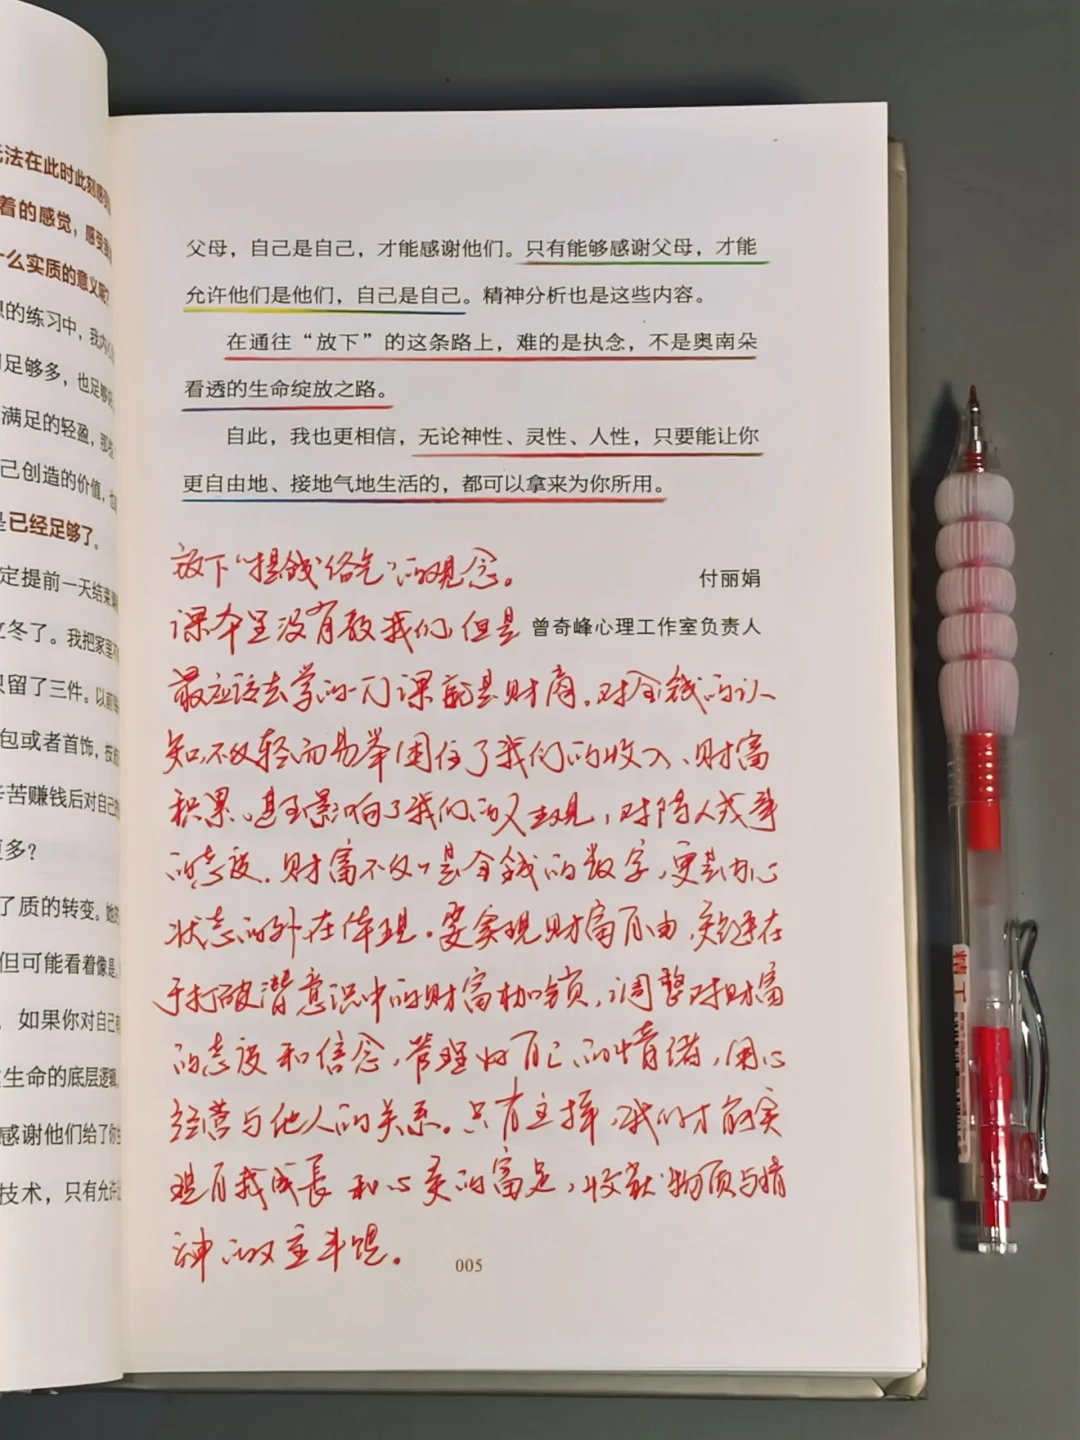 无法在此时此刻感
着的感觉，感受
什么实质的意义呢？
的练习中，我内
足够多，也足够
满足的轻盈，那
己创造的价值，也
是已经足够了。
定提前一天结束
立冬了。我把家里
只留了三件。以前
包或者首饰，
辛苦赚钱后对自己
更多？
了质的转变。她
但可能看着像是
，如果你对自己有
生命的底层逻辑，
感谢他们给了你
技术，只有允许
父母，自己是自己，才能感谢他们。只有能够感谢父母，才能
允许他们是他们，自己是自己。精神分析也是这些内容。
在通往“放下”的这条路上，难的是执念，不是奥南朵
看透的生命绽放之路。
自此，我也更相信，无论神性、灵性、人性，只要能让你
更自由地、接地气地生活的，都可以拿来为你所用。
付丽娟
曾奇峰心理工作室负责人
放下“提钱俗气”的观念。
课本里没有教我们，但是
最应该去学的一门课就是财商。对金钱的认
知，不仅轻而易举困住了我们的收入、财富
积累，甚至影响了我们的人生观，对待人或事
的态度。财富不仅仅是金钱的数字，更是内心
状态的外在体现。要实现财富自由，关键在
于打破潜意识中的财富枷锁，调整对财富
的态度和信念，管理好自己的情绪，用心
经营与他人的关系。只有这样，我们才能实
现自我成长和心灵的富足，收获物质与精
神的双丰盛。
005
精工